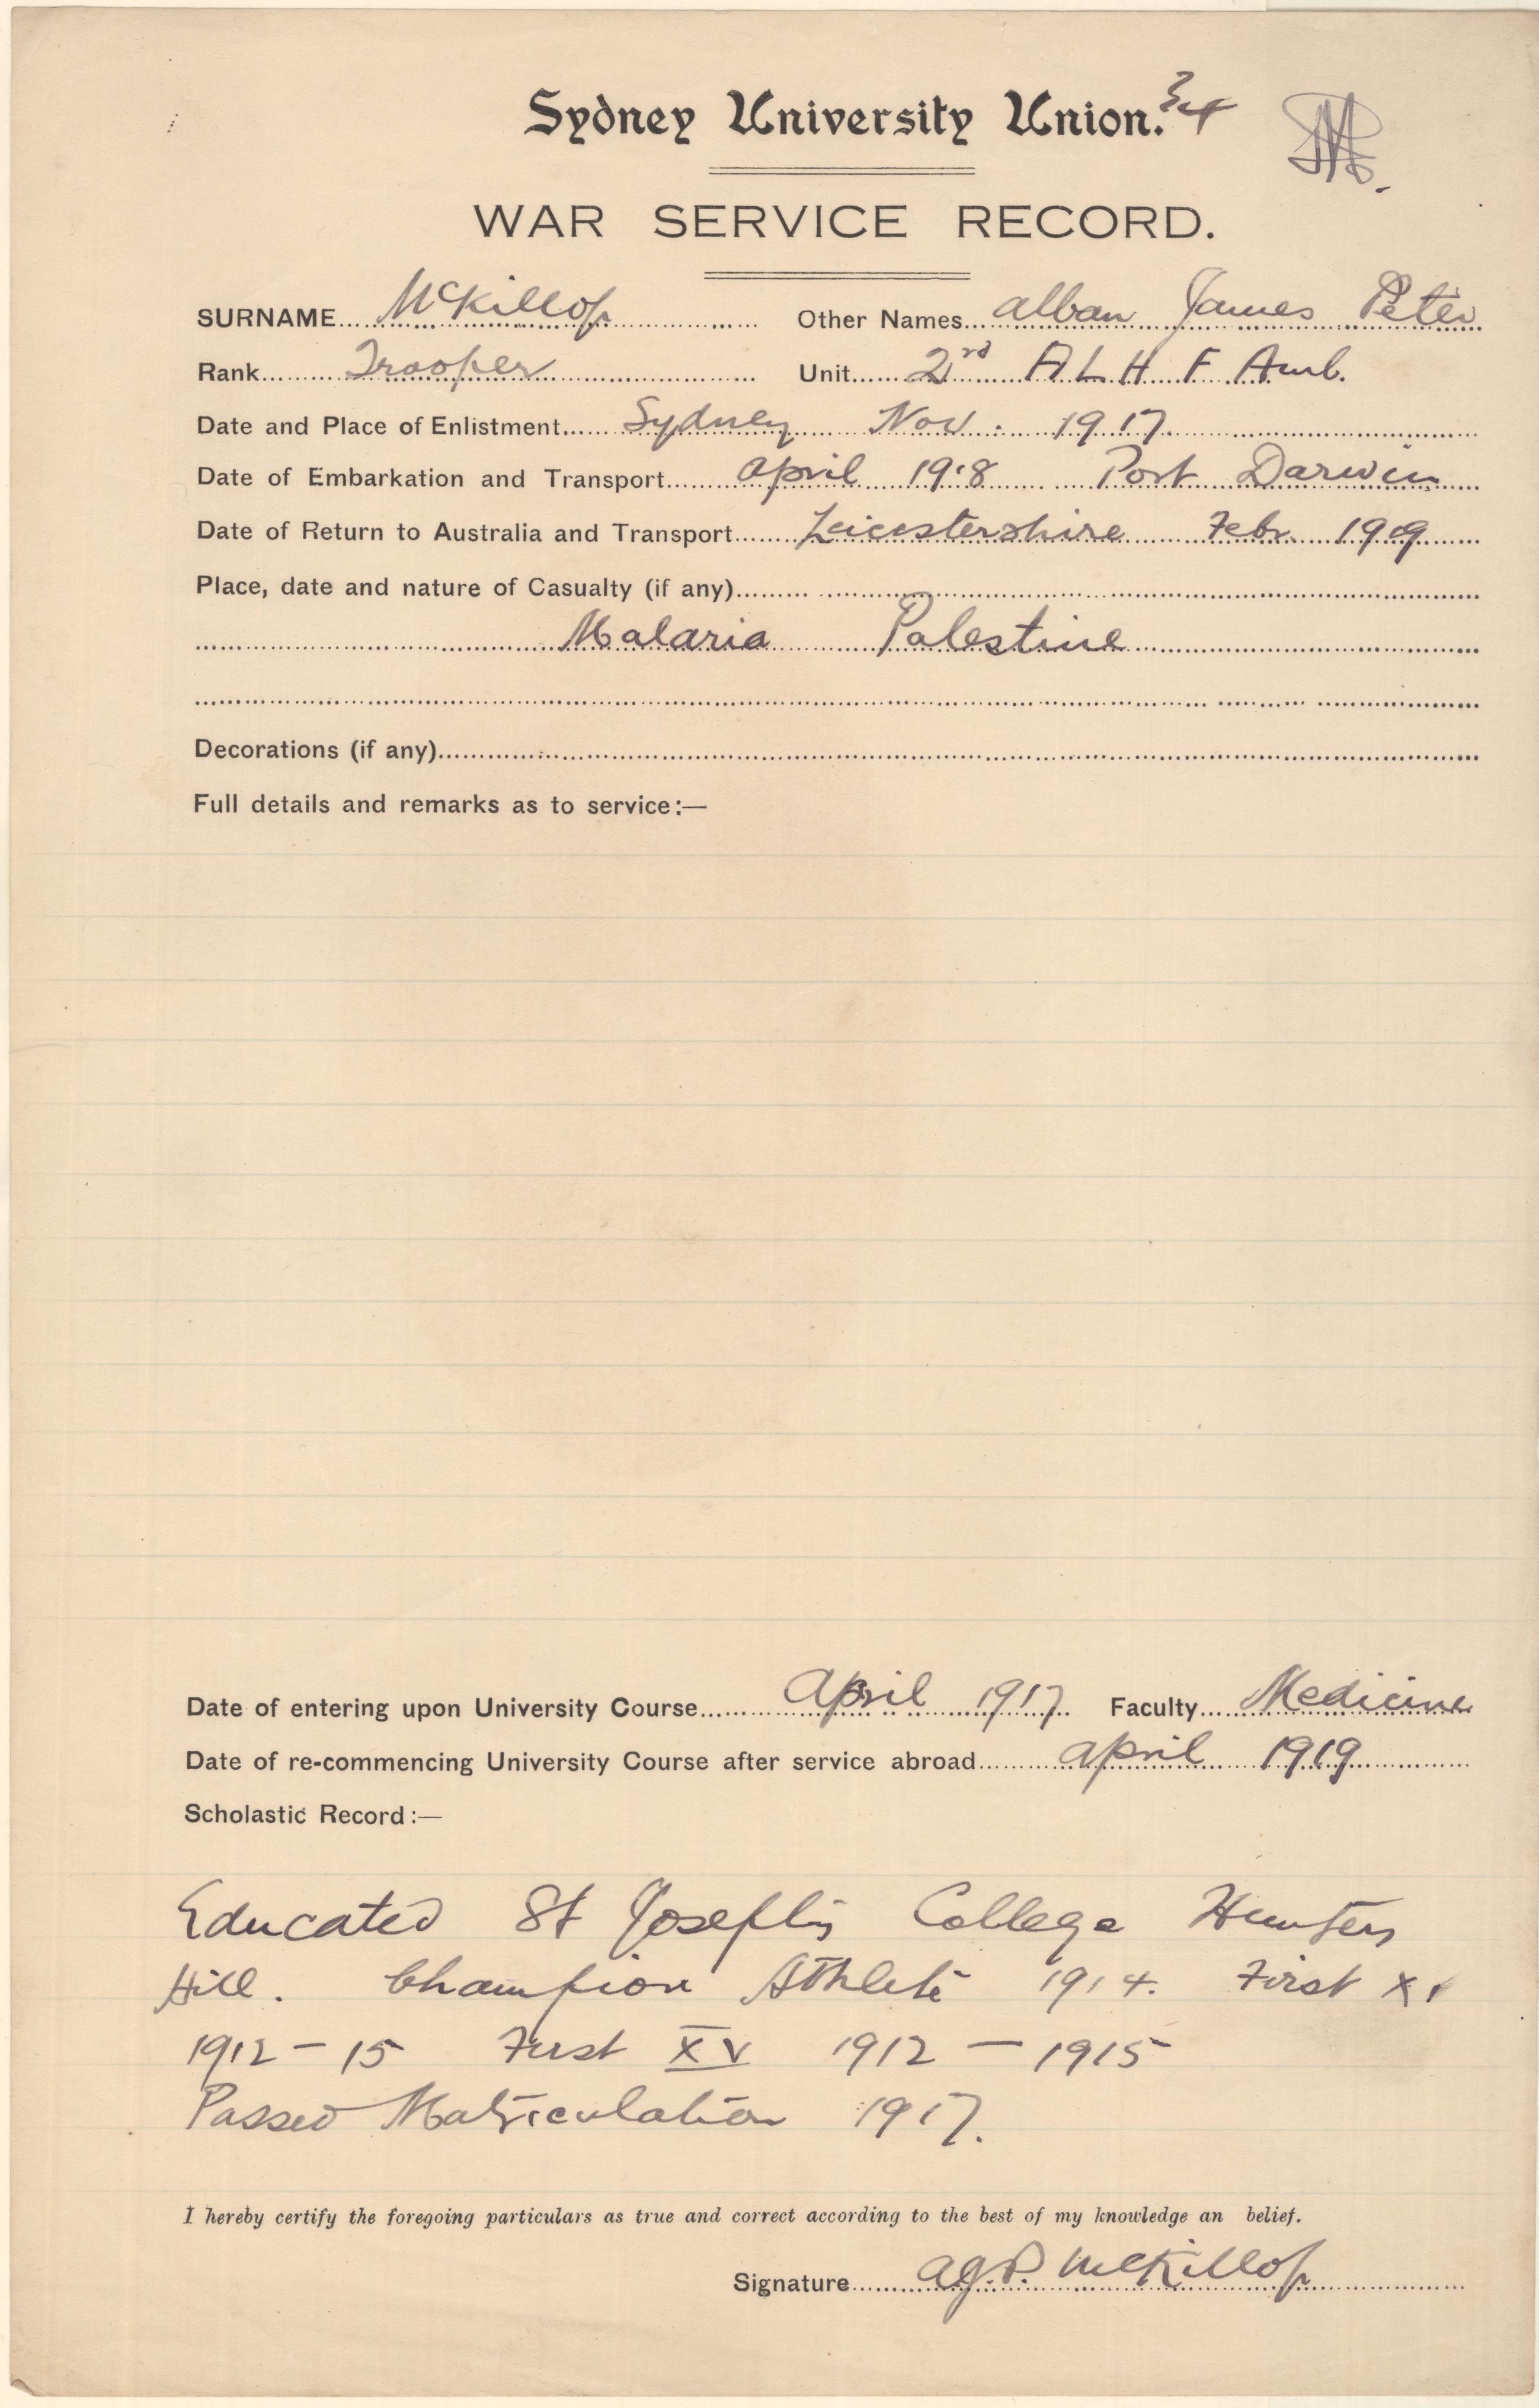 Sydney University Union. 34
WAR SERVICE RECORD.
SURNAME McKillop Other Names Alban James Peter
Rank Trooper Unit 2rd A L H F Amb.
Date and Place of Enlistment Sydney Nov. 1917.
Date of Embarkation and Transport April 1918 Port Darwin
Date of Return to Australia and Transport Leicestershire Febr. 1919
Place, date and nature of Casualty (if any)
Malaria Palestine
Decorations (if any)
Full details and remarks as to service:—
Date of entering upon University Course April 1917. Faculty Medicine
Date of re-commencing University Course after service abroad April 1919
Scholastic Record:—
Educated St Joseph's College Hunters
Hill. Champion Athlete 1914. First XI
1912 - 15 First XV 1912 - 1915
Passed Matriculation 1917.
I hereby certify the foregoing particulars as true and correct according to the best of my knowledge an belief.
Signature A.J.P. McKillop